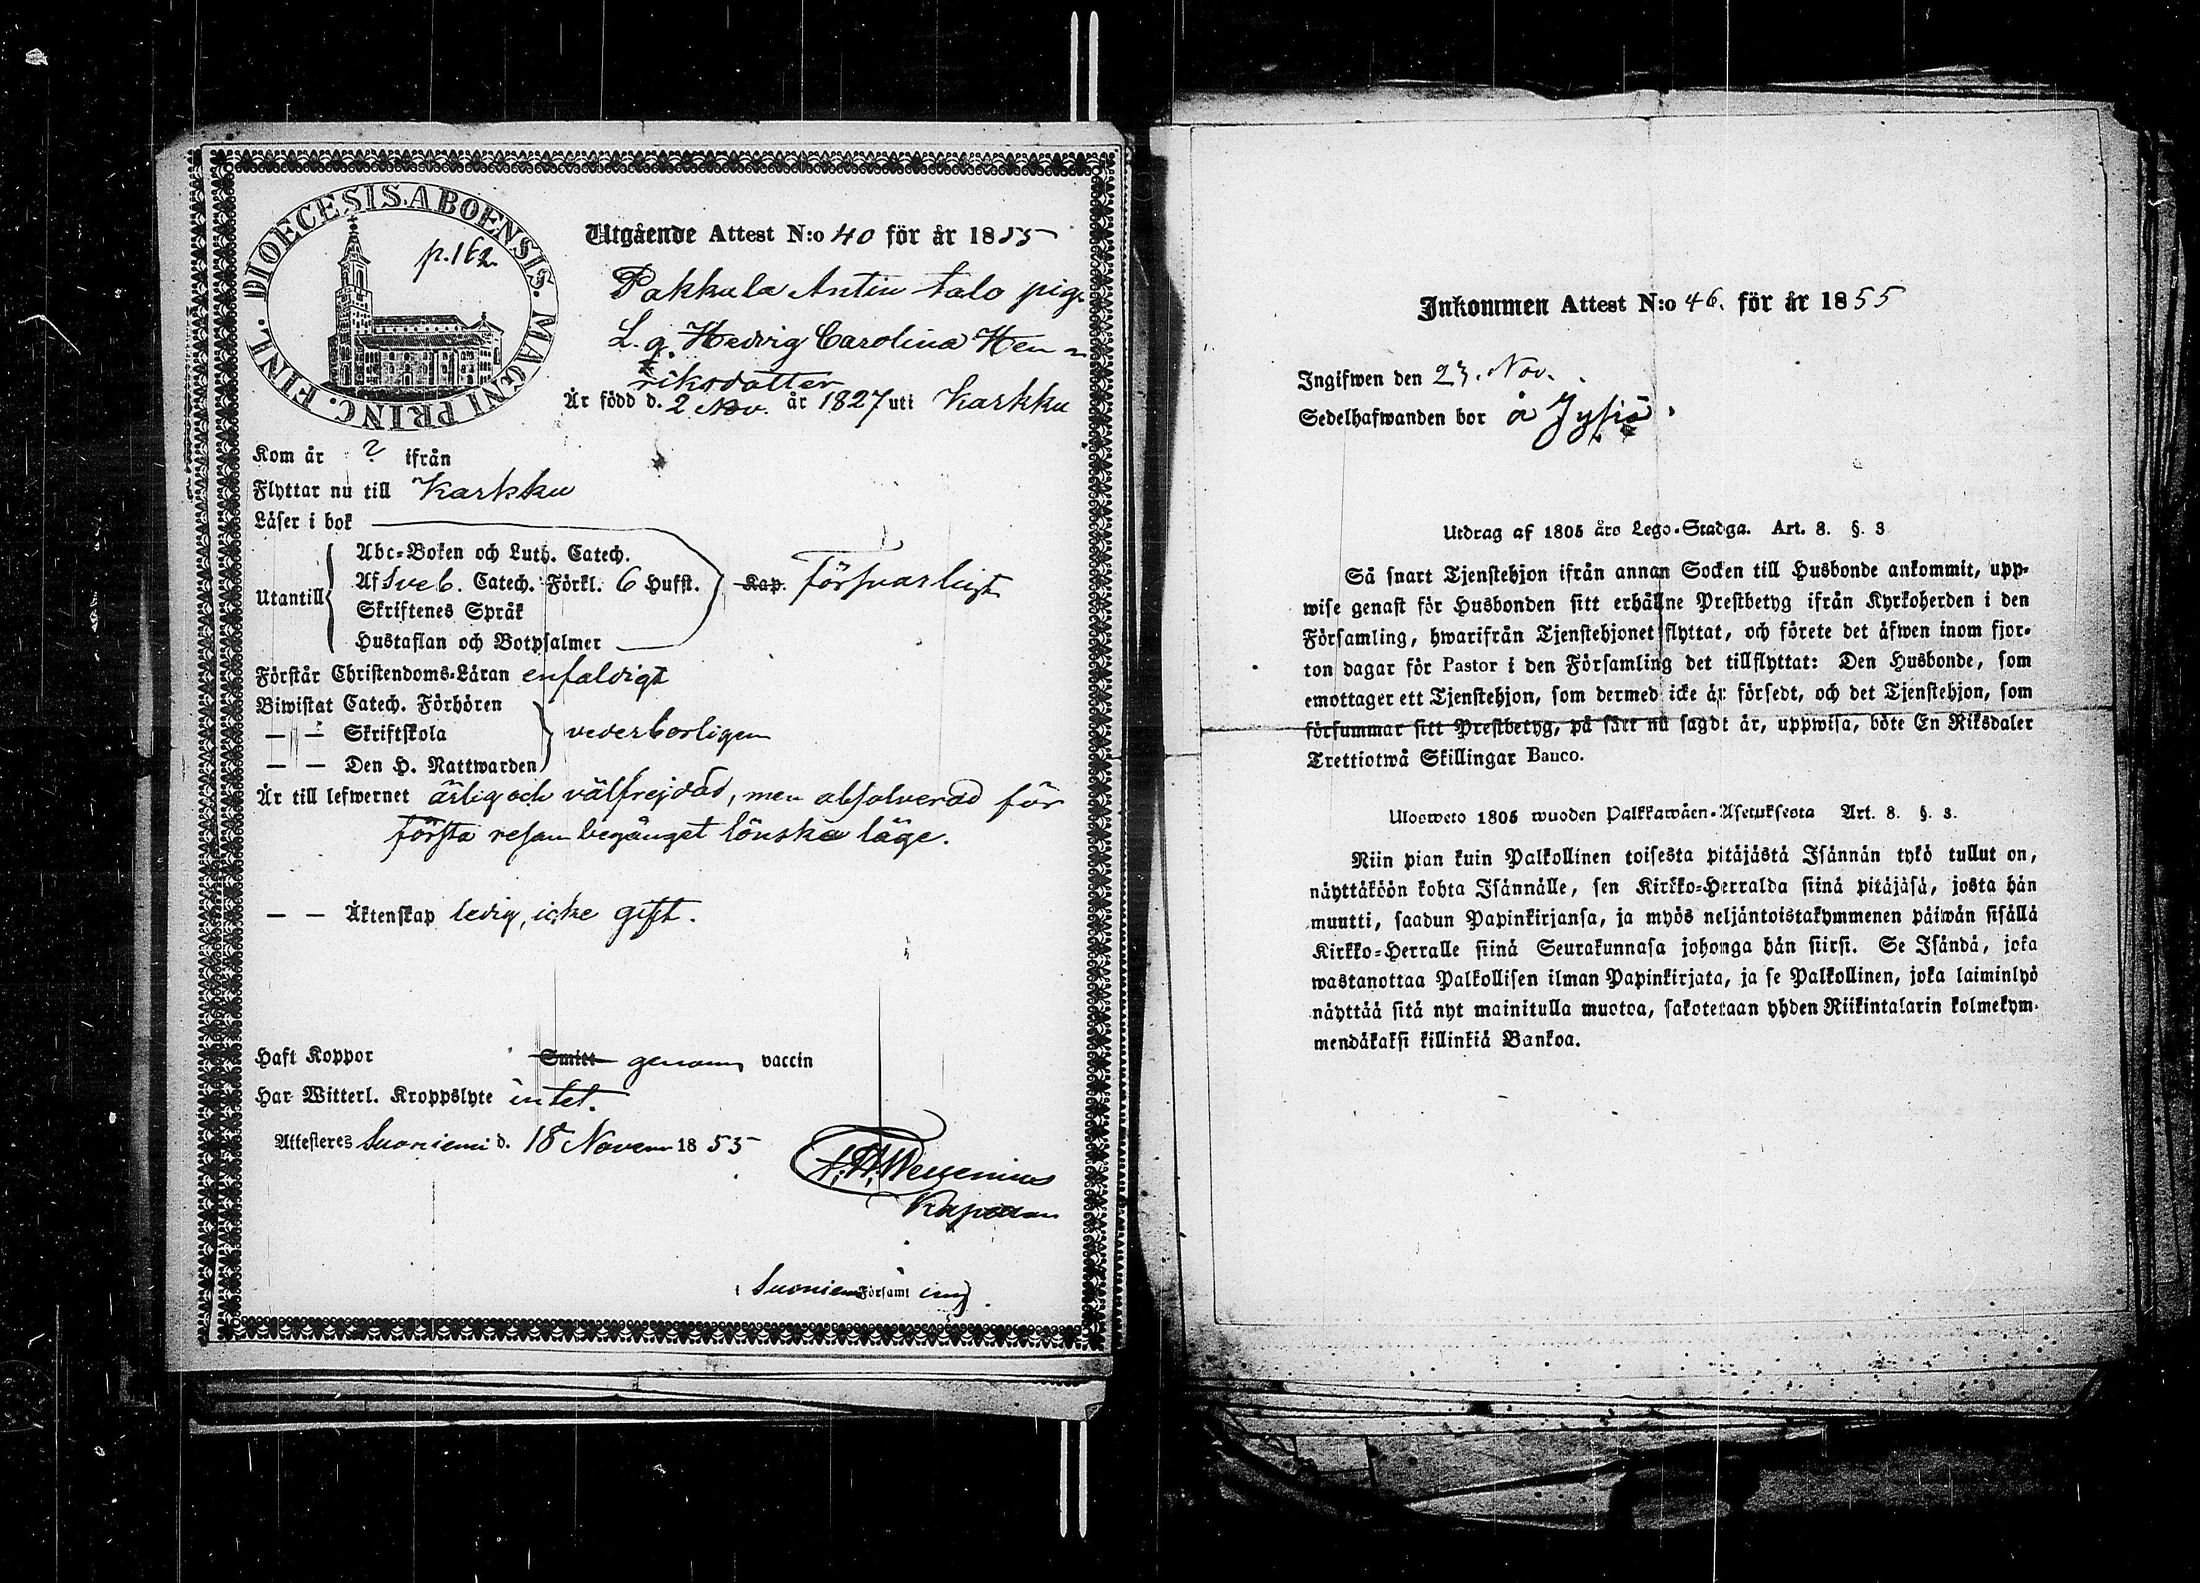 DIOECESIS. ABOENSIS. MAGNI PRINC. FINL.
p. 162
Utgående Attest N:o 40 för år 1855
Pakkala Antin talo pig.
L. q. Hedvig Carolina Hen-
riksdotter
Är född d. 2 Nov. år 1827 uti Karkku
Kom år ? ifrån
Flyttar nu till Karkku
Läser i bok
Utantill
Abc-Boken och Luth. Catech.
Af Sveb. Catech. Förkl. 6 Hufst. Kap. försvarligt
Skriftenes Språk
Hustaflan och Botpsalmer
Förstår Christendoms-Läran enfaldigt
Biwistat Catech. Förhören
— — Skriftskola vederborligen
— — Den H. Nattwarden
Är till lefwernet ärlig och välfrejdad, men absolverad för
första resan begånget lönska läge.
— — Äktenskap ledig, icke gift.
Haft Koppor Smitt genom vaccin
Har Witterl. Kroppslyte intet.
Attesteres Suoniemi d. 18 Novem 1855
Kapellan
Suoniemi Församl ing
Inkommen Attest N:o 46. för år 1855
Ingifwen den 23. Nov.
Sedelhafwanden bor å
Utdrag af 1805 års Lego-Stadga. Art. 8. §. 3
Så snart Tjenstehjon ifrån annan Socken till Husbonde ankommit, upp-
wise genast för Husbonden sitt erhållne Prestbetyg ifrån Kyrkoherden i den
Församling, hwarifrån Tjenstehjonet flyttat, och förete det äfwen inom fjor-
ton dagar för Pastor i den Församling det tillflyttat: Den Husbonde, som
emottager ett Tjenstehjon, som dermed icke är försedt, och det Tjenstehjon, som
försummar sitt Prestbetyg, på sätt nu sagdt är, uppwisa, böte En Riksdaler
Trettiotwå Skillingar Banco.
Ulosweto 1805 wuoden Palkkawäen-Asetuksesta Art. 8. §. 3.
Niin pian kuin Palkollinen toisesta pitäjästä Isännän tykö tullut on,
näyttäköön kohta Isännälle, sen Kirkko-Herralda siinä pitäjäsä, josta hän
muutti, saadun Papinkirjansa, ja myös neljäntoistakymmenen päiwän sisällä
Kirkko-Herralle siinä Seurakunnasa johonga hän siirsi. Se Isändä, joka
wastanottaa Palkollisen ilman Papinkirjata, ja se Palkollinen, joka laiminlyö
näyttää sitä nyt mainitulla muotoa, sakotetaan yhden Riikintalarin kolmekym-
mendäkaksi killinkiä Bankoa.